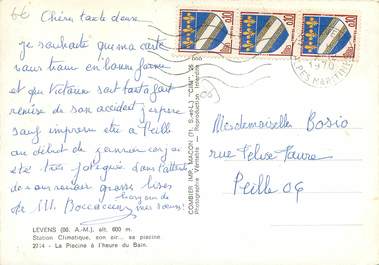 Chère tante
Je souhaite que ma carte
vous trouve en bonne forme
et que Victorine soit tout à fait
remise de son accident. j'espère
sauf imprévu être à Peille
au début de
été très fatiguée dans l'attente
de vous revoir grosses bises
de M. Boccacini
mes soeurs
LEVENS (06. A.-M.), alt. 600 m.
Station Climatique, son air... sa piscine
2014 - La Piscine à l'heure du Bain.
COMBIER IMP. MACON (Fl. S.-et-L.) "CIM"
Photographie Véritable - Reproduction Interdite
0,10
0,10
0,10
1970
PES MARITIMES
Mesdemoiselles Bosio
rue Félix Faure
Peille 06